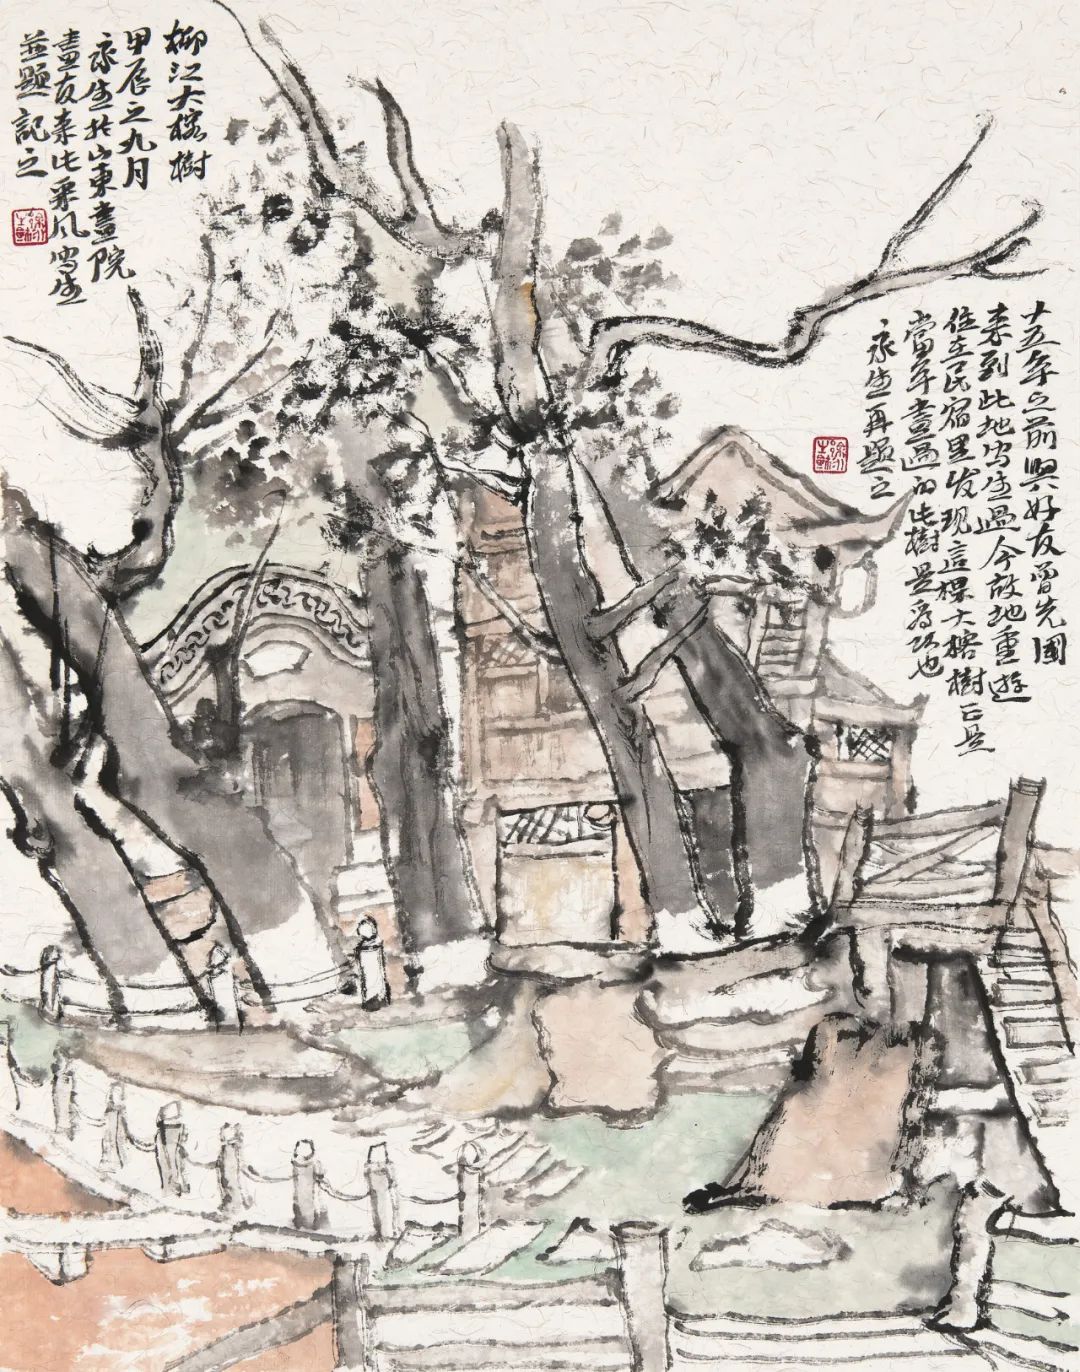 柳江大榕樹
甲辰之九月
永生於山東畫院
畫友来此采风写生
並題記之
十五年之前與好友曾先國
来到此地写生過今故地重遊
住在民宿里发现這棵大榕樹正是
當年畫過的此樹是為巧也
永生再題之